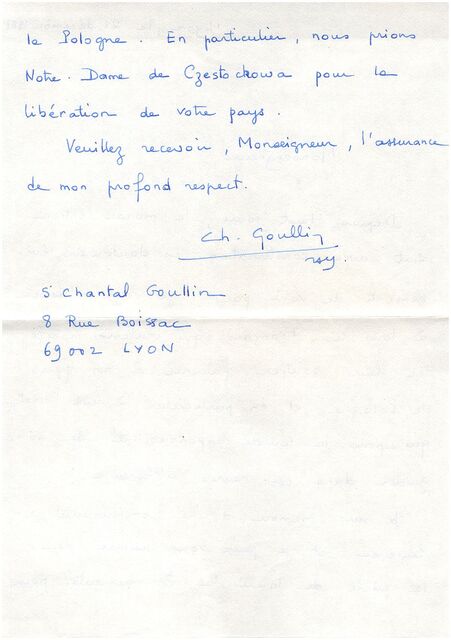 la Pologne. En particulier, nous prions
Notre-Dame de Czestockowa pour la
libération de votre pays.
Veuillez recevoir, Monseigneur, l'assurance
de mon profond respect.
Ch. Goullin
Sr Chantal Goullin
8 Rue Boissac
69002 LYON